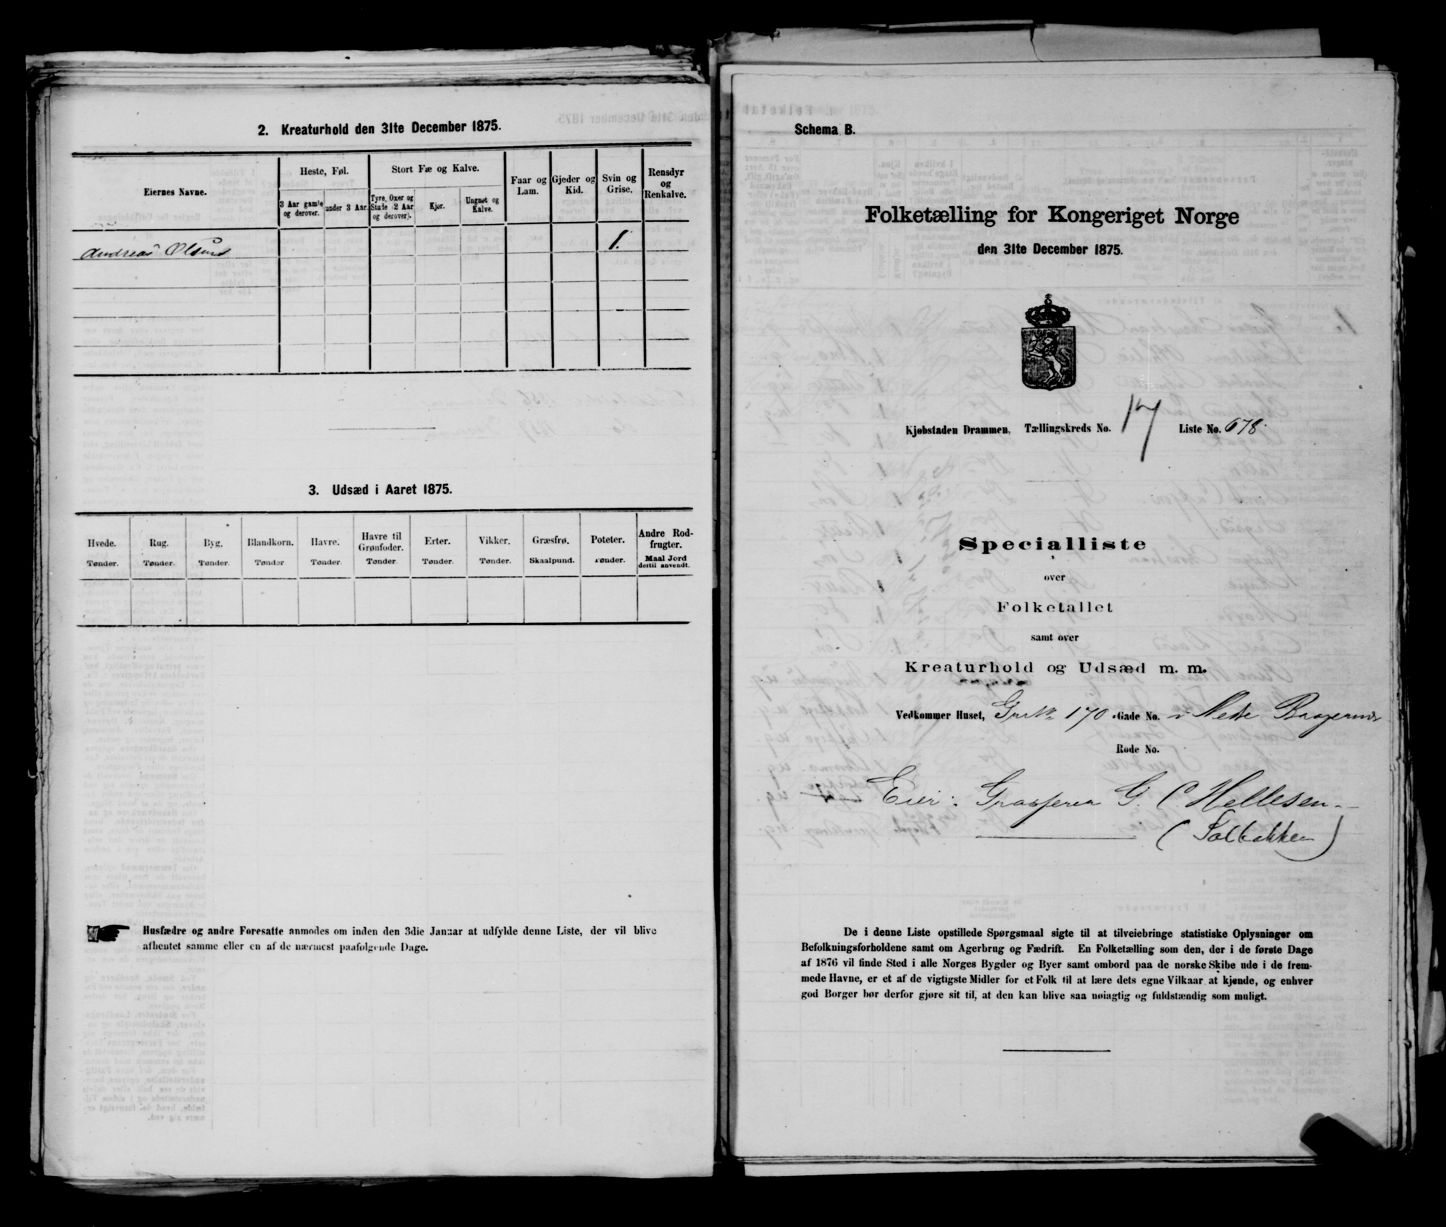 2. Kreaturhold den 31te December 1875.
Eiernes Navne.
Heste, Føl.
Stort Fæ og Kalve.
Faar og Lam.
Gjeder og Kid.
Svin og Grise.
Rensdyr og Renkalve.
3 Aar gamle og derover.
under 3 Aar.
Tyre, Oxer og Stude (2 Aar og derover).
Kjør.
Ungnøt og Kalve.
Andreas Olsen
1.
3. Udsæd i Aaret 1875.
Hvede. Rug. Byg. Blandkorn. Havre. Havre til Grønfoder. Erter. Vikker. Græsfrø. Poteter. Andre Rodfrugter.
Tønder. Tønder. Tønder. Tønder Tønder. Tønder. Tønder. Tønder. Skaalpund. Tønder. Maal Jord dertil anvendt.
Husfædre og andre Foresatte anmodes om inden den 3die Januar at udfylde denne Liste, der vil blive
afhentet samme eller en af de nærmest paafølgende Dage.
Schema B.
Folketælling for Kongeriget Norge
den 31te December 1875.
Kjøbstaden Drammen. Tællingskreds No. 17 Liste No. 678.
Specialliste
over
Folketallet
samt over
Kreaturhold og Udsæd m. m.
Vedkommer Huset, 170 Gade No. Nedre Bragernes
Rode No.
Eier: G. (Hellesen
(Solbakken)
De i denne Liste opstillede Spørgsmaal sigte til at tilveiebringe statistiske Oplysninger om
Befolkningsforholdene samt om Agerbrug og Fædrift. En Folketælling som den, der i de første Dage
af 1876 vil finde Sted i alle Norges Bygder og Byer samt ombord paa de norske Skibe ude i de frem-
mede Havne, er et af de vigtigste Midler for et Folk til at lære dets egne Vilkaar at kjende, og enhver
god Borger bør derfor gjøre sit til, at den kan blive saa nøiagtig og fuldstændig som muligt.